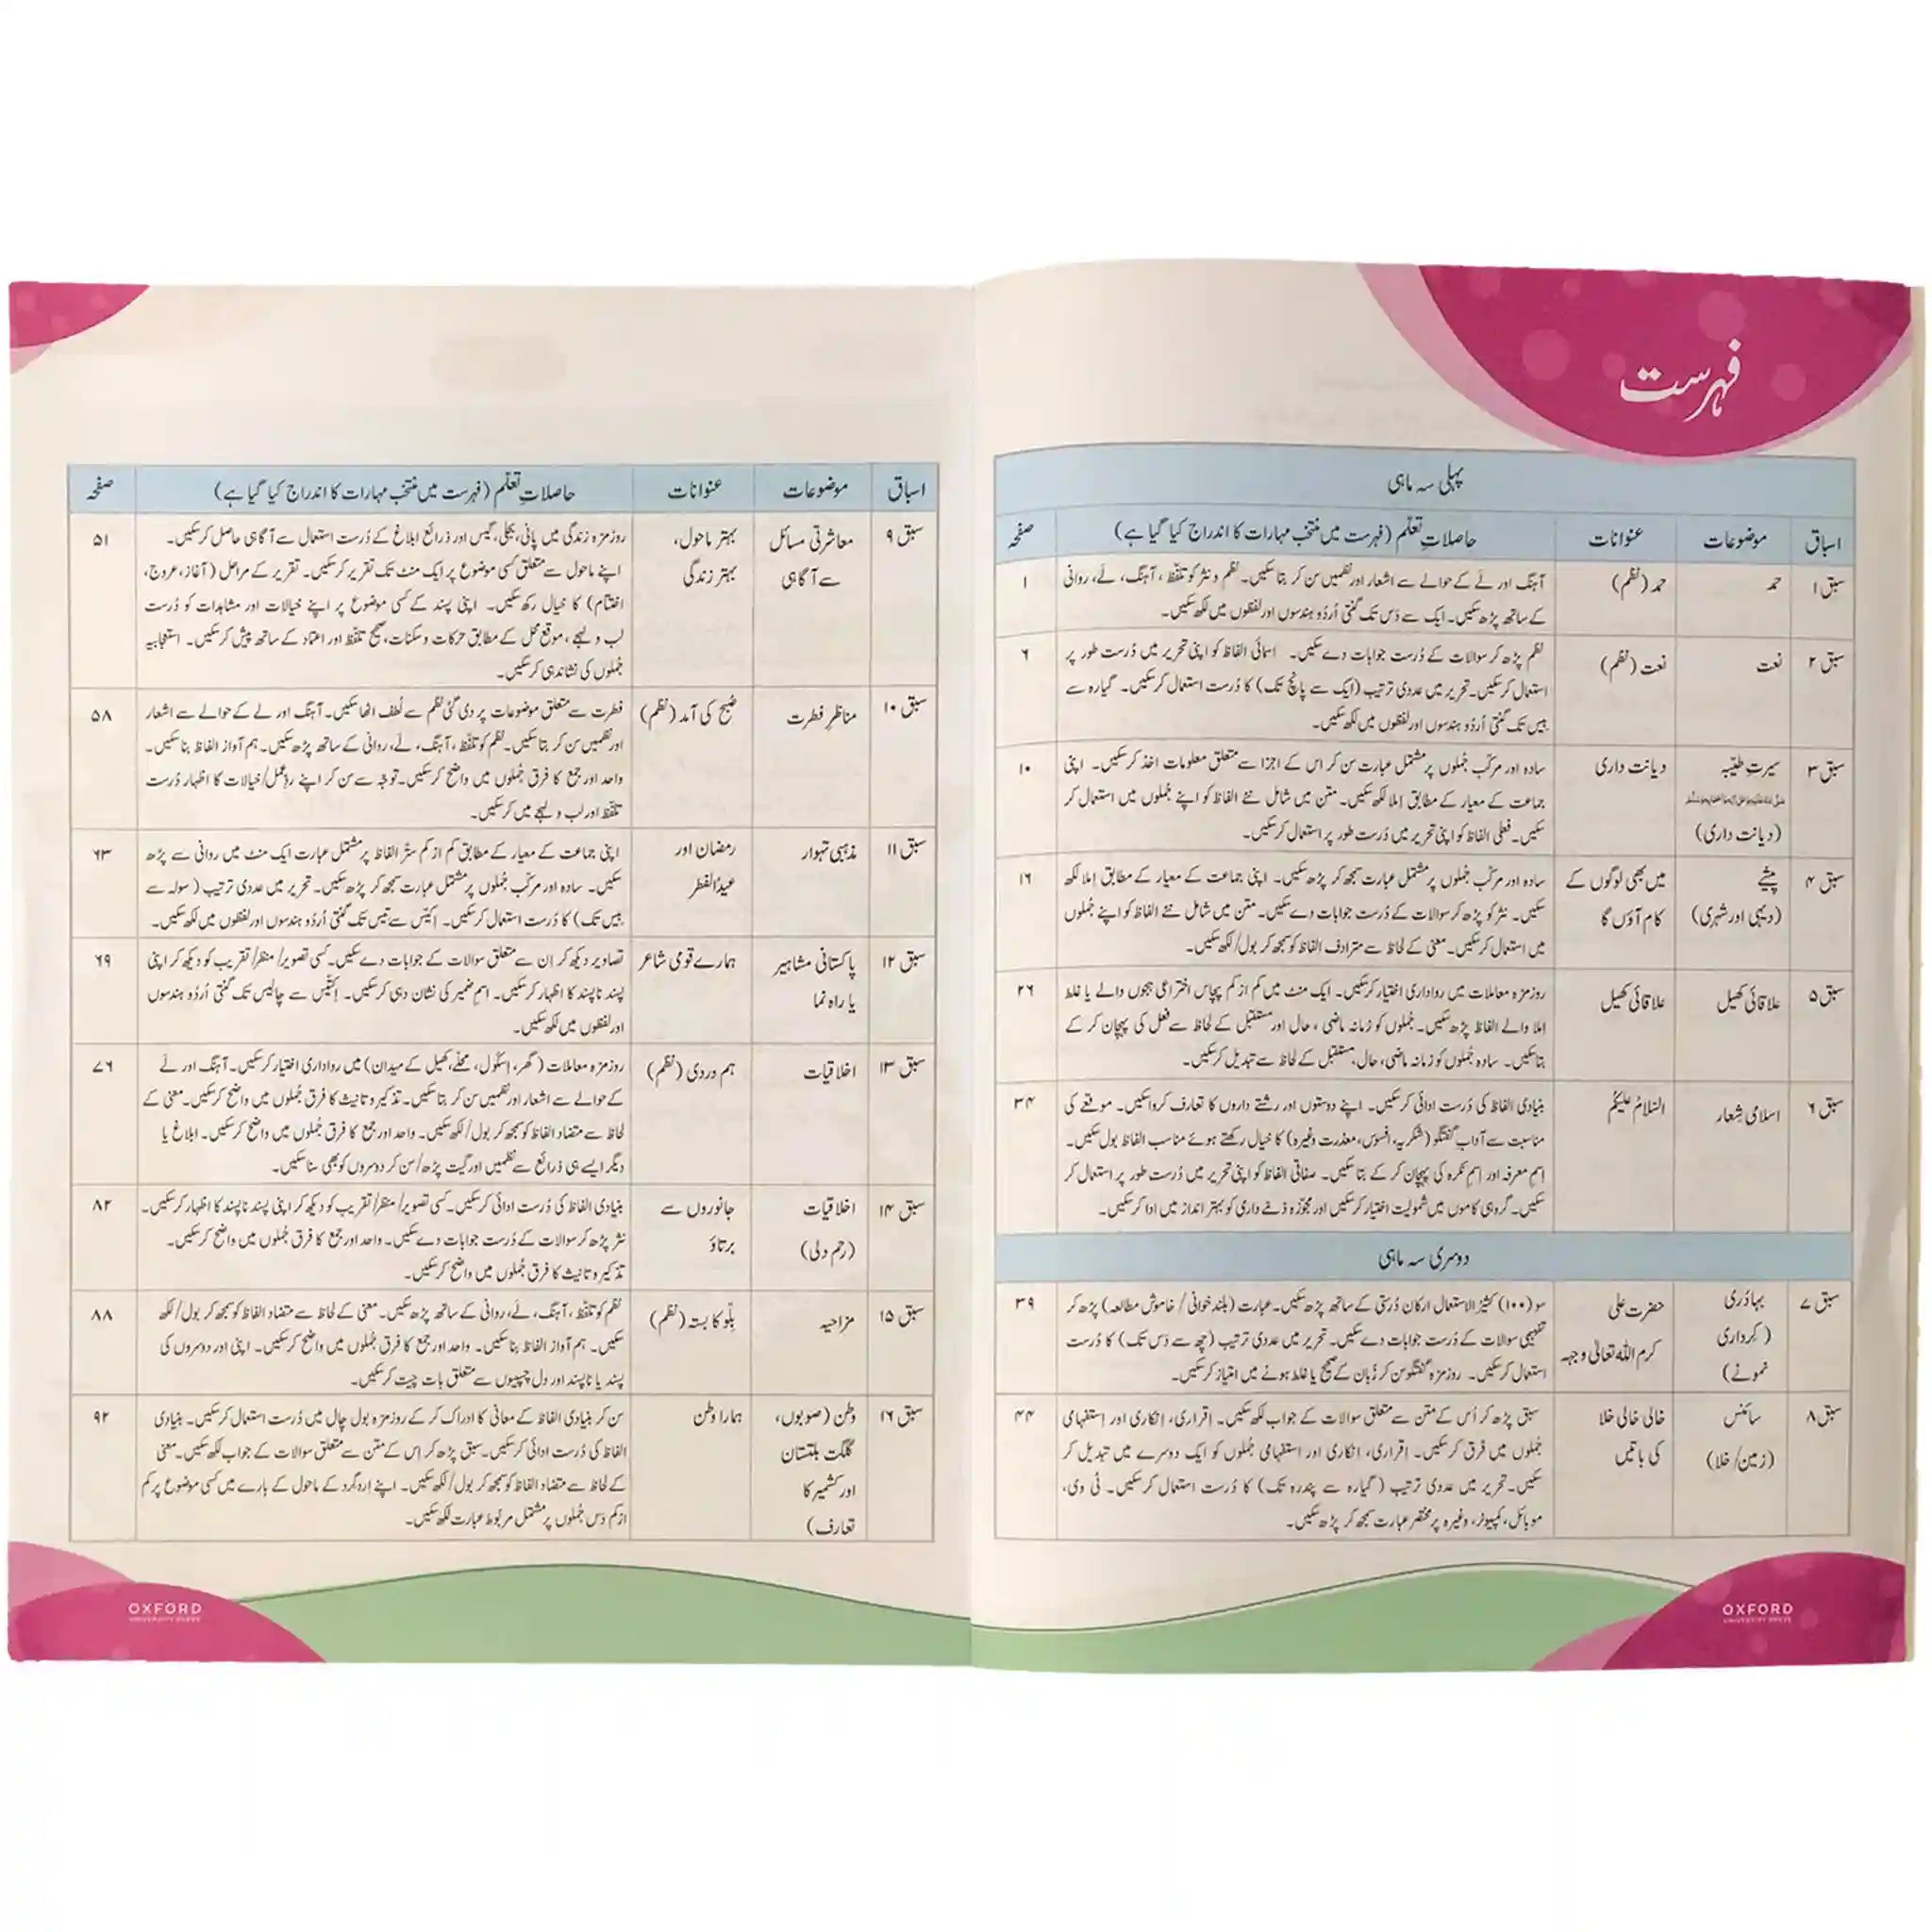 فہرست
پہلی سہ ماہی
اسباق موضوعات عنوانات حاصلاتِ تعلّم (فہرست میں منتخب مہارات کا اندراج کیا گیا ہے) صفحہ
سبق ۱ حمد حمد (نظم) آہنگ اور لے کے حوالے سے اشعار اور نظمیں سن کر بتا سکیں۔ نظم و نثر کو تلفّظ، آہنگ، لے، روانی ۱
کے ساتھ پڑھ سکیں۔ ایک سے دَس تک گنتی اُردُو ہندسوں اور لفظوں میں لکھ سکیں۔
سبق ۲ نعت نعت (نظم) نظم پڑھ کر سوالات کے دُرست جوابات دے سکیں۔ اسمائی الفاظ کو اپنی تحریر میں دُرست طور پر ۶
استعمال کر سکیں۔ تحریر میں عددی ترتیب (ایک سے پانچ تک) کا دُرست استعمال کر سکیں۔ گیارہ سے
بیس تک گنتی اُردُو ہندسوں اور لفظوں میں لکھ سکیں۔
سبق ۳ سیرتِ طیّبہ دیانت داری سادہ اور مرکّب جُملوں پر مشتمل عبارت سن کر اس کے اجزا سے متعلق معلومات اخذ کر سکیں۔ اپنی ۱۰
جماعت کے معیار کے مطابق اِملا لکھ سکیں۔ متن میں شامل نئے الفاظ کو اپنے جُملوں میں استعمال کر
(دیانت داری) سکیں۔ فعلی الفاظ کو اپنی تحریر میں دُرست طور پر استعمال کر سکیں۔
سبق ۴ پیشے میں بھی لوگوں کے سادہ اور مرکّب جُملوں پر مشتمل عبارت سمجھ کر پڑھ سکیں۔ اپنی جماعت کے معیار کے مطابق اِملا لکھ ۱۶
(دیہی اور شہری) کام آؤں گا سکیں۔ نثر کو پڑھ کر سوالات کے دُرست جوابات دے سکیں۔ متن میں شامل نئے الفاظ کو اپنے جُملوں
میں استعمال کر سکیں۔ معنی کے لحاظ سے مترادف الفاظ کو سمجھ کر بول/لکھ سکیں۔
سبق ۵ علاقائی کھیل علاقائی کھیل روزمرہ معاملات میں رواداری اختیار کر سکیں۔ ایک منٹ میں کم از کم پچاس اختراعی ہجوں والے یا غلط ۲۶
اِملا والے الفاظ پڑھ سکیں۔ جُملوں کو زمانہ ماضی، حال اور مستقبل کے لحاظ سے فعل کی پہچان کر کے
بتا سکیں۔ سادہ جُملوں کو زمانہ ماضی، حال، مستقبل کے لحاظ سے تبدیل کر سکیں۔
سبق ۶ اسلامی شِعار السّلامُ علیکُم بنیادی الفاظ کی دُرست ادائی کر سکیں۔ اپنے دوستوں اور رشتے داروں کا تعارف کروا سکیں۔ موقعے کی ۳۴
مناسبت سے آدابِ گفتگو (شکریہ، افسوس، معذرت وغیرہ) کا خیال رکھتے ہوئے مناسب الفاظ بول سکیں۔
اسمِ معرفہ اور اسمِ نکرہ کی پہچان کر کے بتا سکیں۔ صفاتی الفاظ کو اپنی تحریر میں دُرست طور پر استعمال کر
سکیں۔ گروہی کاموں میں شمولیت اختیار کر سکیں اور مجوّزہ ذمے داری کو بہتر انداز میں ادا کر سکیں۔
دوسری سہ ماہی
سبق ۷ بہادُری حضرت علی سو (۱۰۰) کثیرُ الاستعمال ارکان دُرستی کے ساتھ پڑھ سکیں۔ عبارت (بلند خوانی/ خاموش مطالعہ) پڑھ کر ۳۹
(کرداری کرم اللہ تعالیٰ وجہہ تفہیمی سوالات کے دُرست جوابات دے سکیں۔ تحریر میں عددی ترتیب (چھ سے دَس تک) کا دُرست
نمونے) استعمال کر سکیں۔ روزمرہ گفتگو سن کر زُبان کے صحیح یا غلط ہونے میں امتیاز کر سکیں۔
سبق ۸ سائنس خالی خالی خلا سبق پڑھ کر اُس کے متن سے متعلق سوالات کے جواب لکھ سکیں۔ اِقراری، اِنکاری اور استفہامی ۴۴
(زمین/ خلا) کی باتیں جُملوں میں فرق کر سکیں۔ اِقراری، انکاری اور استفہامی جُملوں کو ایک دوسرے میں تبدیل کر
سکیں۔ تحریر میں عددی ترتیب (گیارہ سے پندرہ تک) کا دُرست استعمال کر سکیں۔ ٹی وی،
موبائل، کمپیوٹر، وغیرہ پر مختصر عبارت سمجھ کر پڑھ سکیں۔
OXFORD
UNIVERSITY PRESS
اسباق موضوعات عنوانات حاصلاتِ تعلّم (فہرست میں منتخب مہارات کا اندراج کیا گیا ہے) صفحہ
سبق ۹ معاشرتی مسائل بہتر ماحول، روزمرہ زندگی میں پانی، بجلی، گیس اور ذرائع ابلاغ کے دُرست استعمال سے آگاہی حاصل کر سکیں۔ ۵۱
سے آگاہی بہتر زندگی اپنے ماحول سے متعلق کسی موضوع پر ایک منٹ تک تقریر کر سکیں۔ تقریر کے مراحل (آغاز، عروج،
اختتام) کا خیال رکھ سکیں۔ اپنی پسند کے کسی موضوع پر اپنے خیالات اور مشاہدات کو دُرست
لب و لہجے، موقع محل کے مطابق حرکات و سکنات، صحیح تلفّظ اور اعتماد کے ساتھ پیش کر سکیں۔ استعجابیہ
جُملوں کی نشاندہی کر سکیں۔
سبق ۱۰ مناظرِ فطرت صُبح کی آمد (نظم) فطرت سے متعلق موضوعات پر دی گئی نظم سے لُطف اٹھا سکیں۔ آہنگ اور لے کے حوالے سے اشعار ۵۸
اور نظمیں سن کر بتا سکیں۔ نظم کو تلفّظ، آہنگ، لے، روانی کے ساتھ پڑھ سکیں۔ ہم آواز الفاظ بنا سکیں۔
واحد اور جمع کا فرق جُملوں میں واضح کر سکیں۔ توجّہ سے سن کر اپنے ردِّعمل/خیالات کا اظہار دُرست
تلفّظ اور لب و لہجے میں کر سکیں۔
سبق ۱۱ مذہبی تہوار رمضان اور اپنی جماعت کے معیار کے مطابق کم از کم ستّر الفاظ پر مشتمل عبارت ایک منٹ میں روانی سے پڑھ ۶۳
عیدُالفطر سکیں۔ سادہ اور مرکّب جُملوں پر مشتمل عبارت سمجھ کر پڑھ سکیں۔ تحریر میں عددی ترتیب (سولہ سے
بیس تک) کا دُرست استعمال کر سکیں۔ اِکیس سے تیس تک گنتی اُردُو ہندسوں اور لفظوں میں لکھ سکیں۔
سبق ۱۲ پاکستانی مشاہیر ہمارے قومی شاعر تصاویر دیکھ کر اِن سے متعلق سوالات کے جوابات دے سکیں۔ کسی تصویر/ منظر/ تقریب کو دیکھ کر اپنی ۶۹
یا راہ نما پسند ناپسند کا اظہار کر سکیں۔ اسمِ ضمیر کی نشان دہی کر سکیں۔ اِکتّیس سے چالیس تک گنتی اُردُو ہندسوں
اور لفظوں میں لکھ سکیں۔
سبق ۱۳ اخلاقیات ہم دردی (نظم) روزمرہ معاملات (گھر، اِسکُول، محلّے، کھیل کے میدان) میں رواداری اختیار کر سکیں۔ آہنگ اور لے ۷۶
کے حوالے سے اشعار اور نظمیں سن کر بتا سکیں۔ تذکیر و تانیث کا فرق جُملوں میں واضح کر سکیں۔ معنی کے
لحاظ سے متضاد الفاظ کو سمجھ کر بول/لکھ سکیں۔ واحد اور جمع کا فرق جُملوں میں واضح کر سکیں۔ ابلاغ یا
دیگر ایسے ہی ذرائع سے نظمیں اور گیت پڑھ/سن کر دوسروں کو بھی سنا سکیں۔
سبق ۱۴ اخلاقیات جانوروں سے بنیادی الفاظ کی دُرست ادائی کر سکیں۔ کسی تصویر/ منظر/ تقریب کو دیکھ کر اپنی پسند ناپسند کا اظہار کر سکیں۔ ۸۲
(رحم دلی) برتاؤ نثر پڑھ کر سوالات کے دُرست جوابات دے سکیں۔ واحد اور جمع کا فرق جُملوں میں واضح کر سکیں۔
تذکیر و تانیث کا فرق جُملوں میں واضح کر سکیں۔
سبق ۱۵ مزاحیہ بِلّو کا بستہ (نظم) نظم کو تلفّظ، آہنگ، لے، روانی کے ساتھ پڑھ سکیں۔ معنی کے لحاظ سے متضاد الفاظ کو سمجھ کر بول/لکھ ۸۸
سکیں۔ ہم آواز الفاظ بنا سکیں۔ واحد اور جمع کا فرق جُملوں میں واضح کر سکیں۔ اپنی اور دوسروں کی
پسند یا ناپسند اور دل چسپیوں سے متعلق بات چیت کر سکیں۔
سبق ۱۶ وطن (صوبوں، ہمارا وطن سن کر بنیادی الفاظ کے معانی کا ادراک کر کے روزمرہ بول چال میں دُرست استعمال کر سکیں۔ بنیادی ۹۲
گلگت بلتستان الفاظ کی دُرست ادائی کر سکیں۔ سبق پڑھ کر اِس کے متن سے متعلق سوالات کے جواب لکھ سکیں۔ معنی
اور کشمیر کا کے لحاظ سے متضاد الفاظ کو سمجھ کر بول/لکھ سکیں۔ اپنے اردگرد کے ماحول کے بارے میں کسی موضوع پر کم
تعارف) از کم دَس جُملوں پر مشتمل مربُوط عبارت لکھ سکیں۔
OXFORD
UNIVERSITY PRESS